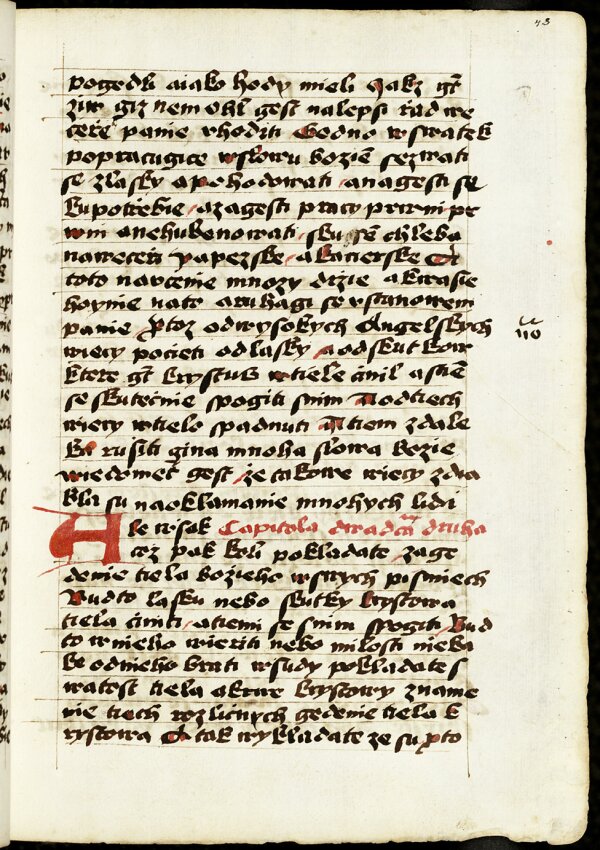 43
pogedli aiako hody mieli Jakz gt
ziw giz nemohl gest nalepsi rad we
cere panie vhoditi Gedno wswatek
popracugice wslowu bozie sezwati
se zlasky apohodowati anagesti se
kupotrebie azagesti pracy prwni pr
anehubenowati chleba
naweceri papezske akacierske A
toto nawcenie mnozy drzie akwasie
hoynie nato aruhagi se vstanowem
panie ptoz odwysokych Angelskych
wiecy pocieti odlasky aodskutkow
ktere gt krystus wtiele cinil astie
se skutecnie spogiti snim Aodtiech
wiecy wtielo spadnuti A tiem zdale
ka rusiti gina mnoha slowa bozie
wiedomet gest ze takowe wiecy zdia
bla su naoklamanie mnohych lidi
Ale wsak Capitola dwadcta druha
coz pak koli pokladate zage
denie tiela bozieho wswych pismiech
Budto lasku nebo skutky krystowa
tiela ciniti atiemi se snim spogiti Bud
to wnieho wieriti nebo milosti nieka
ke odnieho brati wsudy pokladate s
watost tiela akrwe krystowy zname
nie tiech rozlicnych gedenie tiela k
rystowa A tak wykladate ze su pto